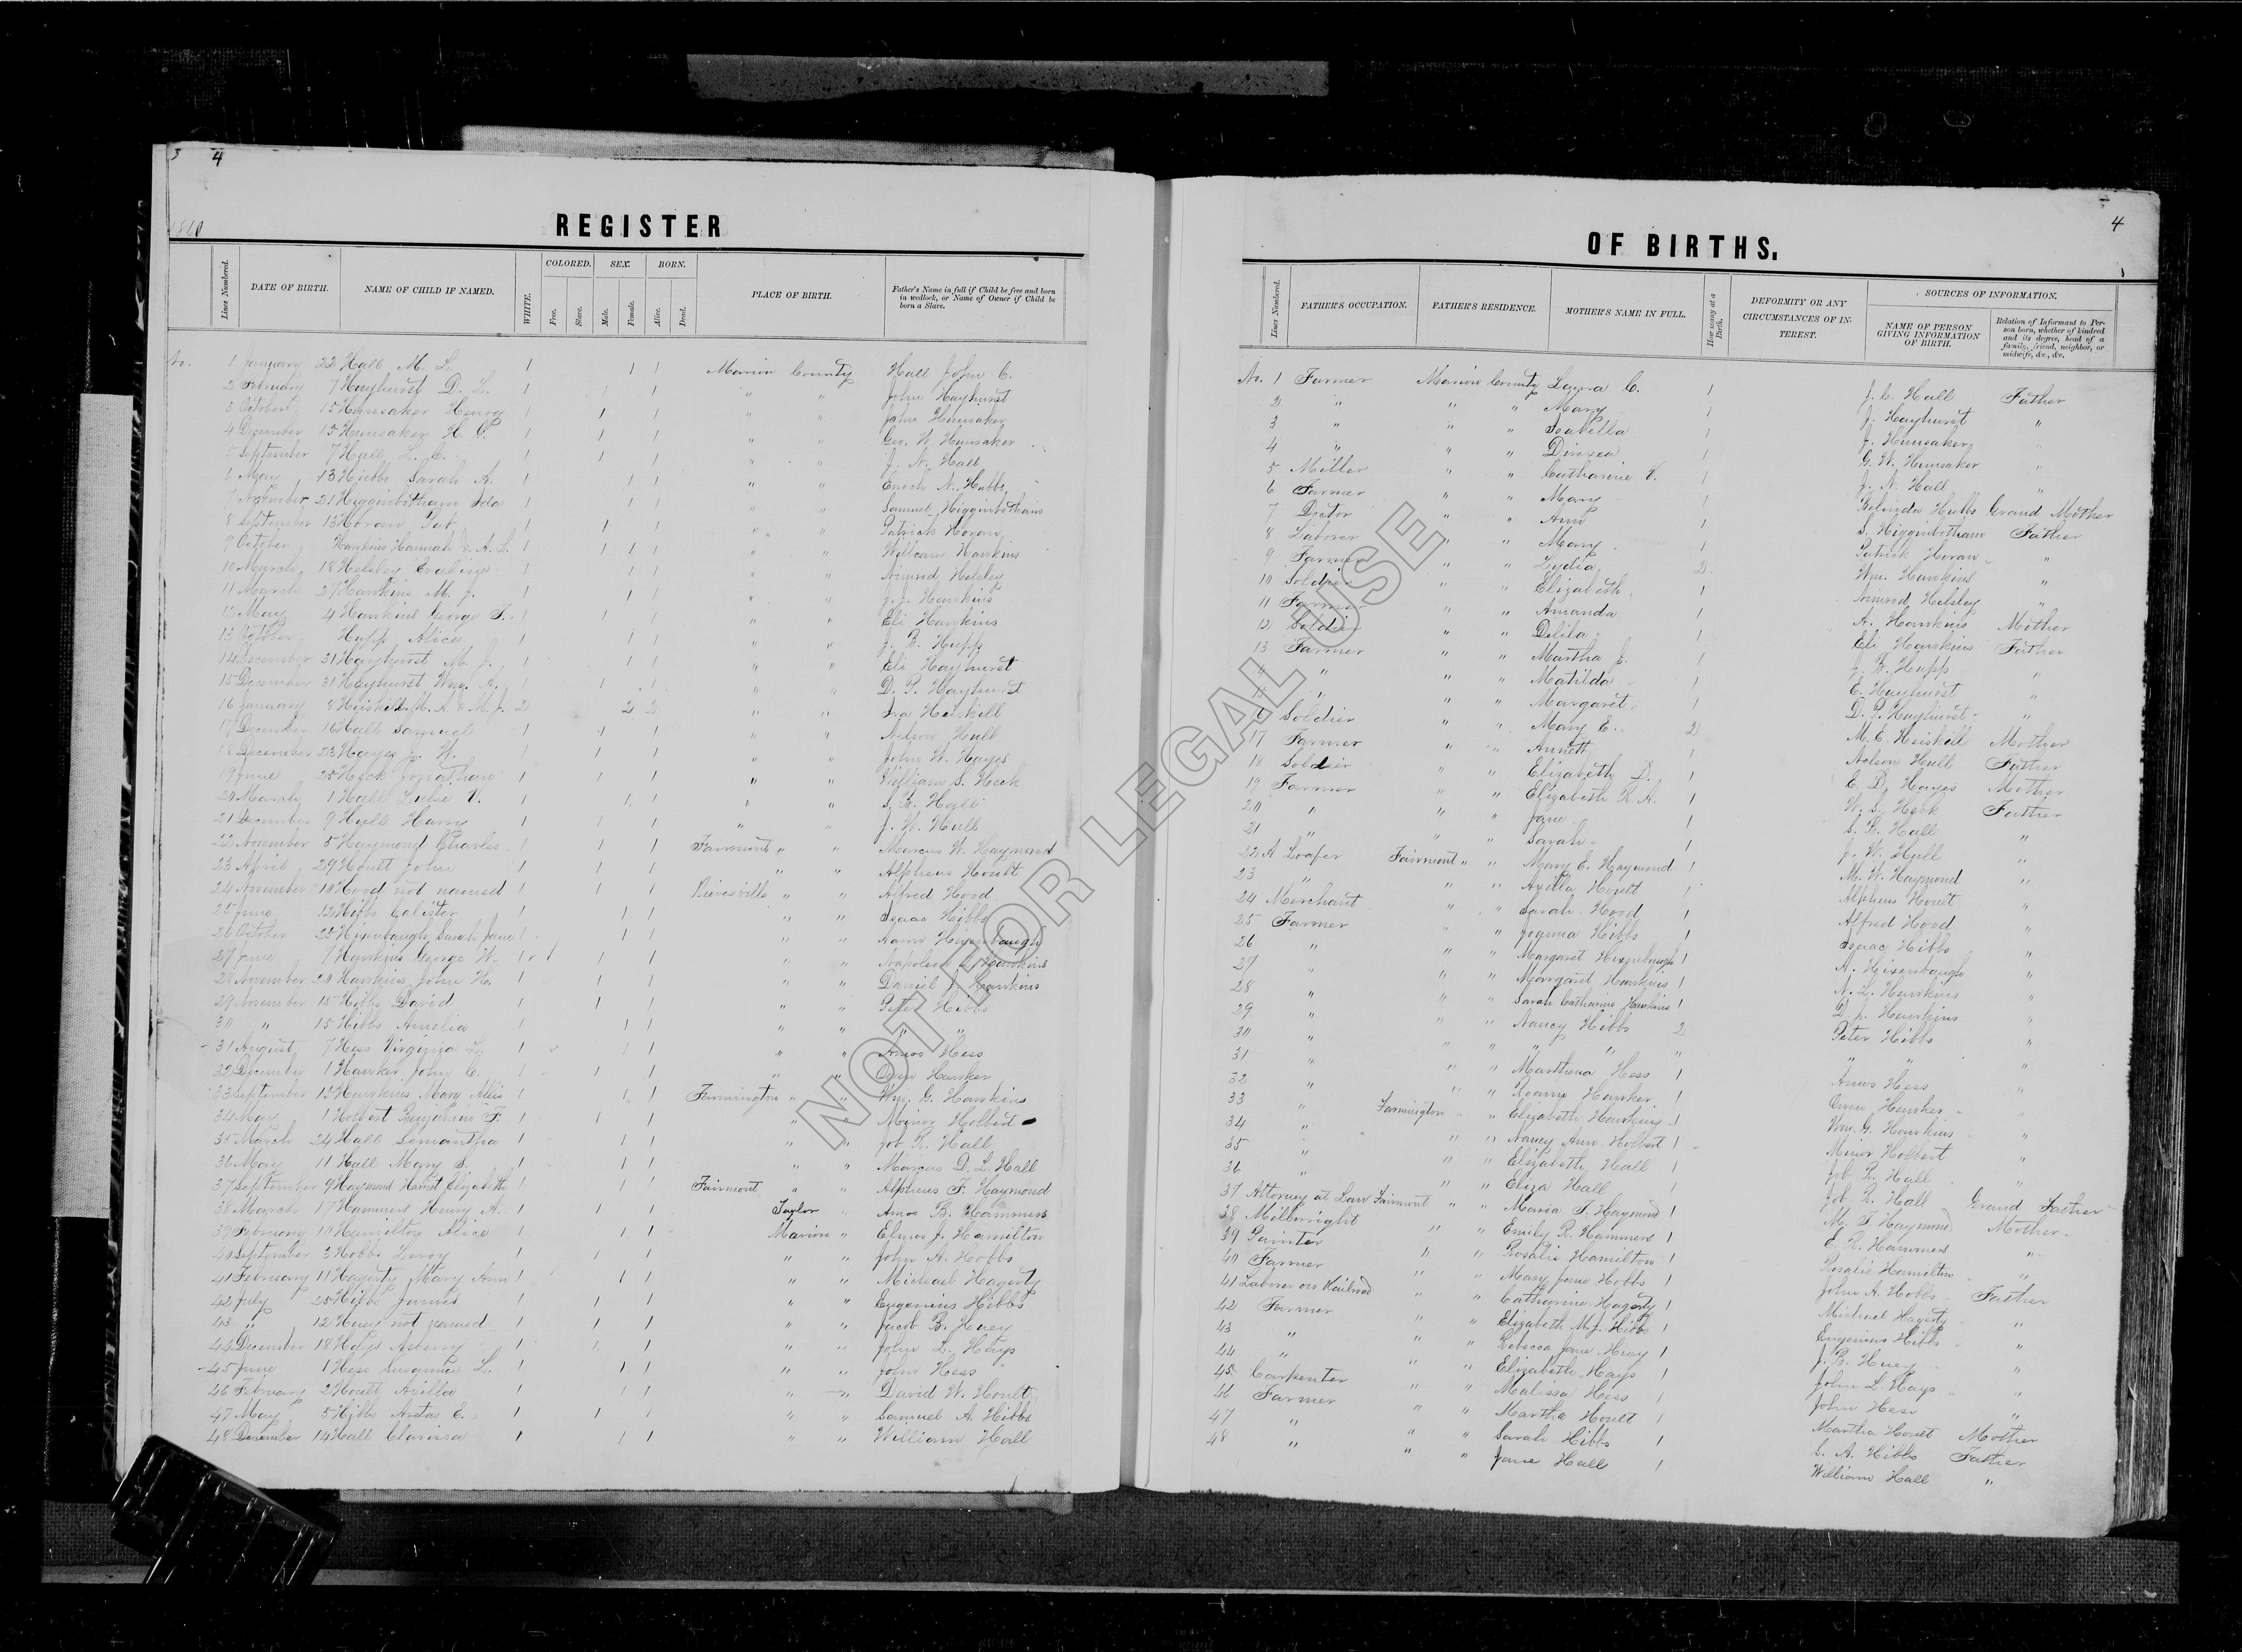 3 4
REGISTER
Lines Numbered. DATE OF BIRTH. NAME OF CHILD IF NAMED. WHITE. COLORED. Free. Slave. SEX. Male. Female. BORN. Alive. Dead. PLACE OF BIRTH. Father's Name in full if Child be free and born in wedlock, or Name of Owner if Child be born a Slave.
No. 1 January 22 Hall M. L. 1 1 1 Marion County Hall John C.
2 February 7 Hayhurst D. L. 1 1 1 " " John Hayhurst
3 October 15 Hunsaker Henry 1 1 1 " " John Hunsaker
4 December 15 Hunsaker H. C. 1 1 1 " " Geo. W. Hunsaker
5 September 7 Hall L. C. 1 1 1 " " J. N. Hall
6 May 13 Hubbs Sarah A. 1 1 1 " " Enoch N. Hubbs
7 November 21 Higginbotham Ida 1 1 1 " " Samuel Higginbotham
8 September 13 Horan Pat 1 1 1 " " Patrick Horan
9 October Hawkins Hannah & A. S. 1 1 1 1 " " William Hawkins
10 March 18 Helsley Evaline 1 1 1 " " Nimrod Helsley
11 March 27 Hawkins M. J. 1 1 1 " " J. J. Hawkins
12 May 4 Hawkins George F. 1 1 1 " " Eli Hawkins
13 October Hupp Alice 1 1 1 " " J. B. Hupp
14 December 31 Hayhurst M. J. 1 1 1 " " Eli Hayhurst
15 December 31 Hayhurst Wm. A. 1 1 1 " " D. P. Hayhurst
16 January 8 Heiskill M. A. & M. J. 2 2 2 " " Ira Heiskill
17 December 16 Hull Samuel 1 1 1 " " Nelson Hull
18 December 23 Hayes J. W. 1 1 1 " " John W. Hayes
19 June 25 Heck Jonathan 1 1 1 " " William S. Heck
20 March 1 Hall Lulie V. 1 1 1 " " S. B. Hall
21 December 9 Hull Harry 1 1 1 " " J. W. Hull
22 November 5 Haymond Charles 1 1 1 Fairmont " " Marcus W. Haymond
23 April 29 Hoult John 1 1 1 " " Alpheus Hoult
24 November 10 Hood not named 1 1 1 Rivesville " " Alfred Hood
25 June 12 Hibbs Calister 1 1 1 " " Isaac Hibbs
26 October 25 Hixenbaugh Sarah Jane 1 1 1 " " Aaron Hixenbaugh
27 June 7 Hawkins George W. 1 1 1 " " Napoleon L. Hawkins
28 November 20 Hawkins John H. 1 1 1 " " Daniel J. Hawkins
29 November 15 Hibbs David 1 1 1 " " Peter Hibbs
30 " 15 Hibbs Amelia 1 1 1 " " " "
31 August 7 Hess Virginia L. 1 1 1 " " Amos Hess
32 December 1 Hawker John C. 1 1 1 " " Owen Hawker
33 September 13 Hawkins Mary Allis 1 1 1 Farmington " " Wm. G. Hawkins
34 May 1 Holbert Benjamin F. 1 1 1 " " Minor Holbert
35 March 24 Hall Samantha 1 1 1 " " Job R. Hall
36 May 11 Hall Mary S. 1 1 1 " " Marcus D. L. Hall
37 September 9 Haymond Harriet Elizabeth 1 1 1 Fairmont " " Alpheus F. Haymond
38 March 17 Hammers Henry A. 1 1 1 Taylor " Amos B. Hammers
39 February 10 Hamilton Alice 1 1 1 Marion " Elmos J. Hamilton
40 September 3 Hobbs Leroy 1 1 1 " " John A. Hobbs
41 February 11 Hagerty Mary Ann 1 1 1 " " Michael Hagerty
42 July 25 Hibbs James 1 1 1 " " Eugenius Hibbs
43 " 12 Huey not named 1 1 1 " " Jacob B. Huey
44 December 18 Hays Asberry 1 1 1 " " John L. Hays
45 June 1 Hess Susannah L. 1 1 1 " " John Hess
46 February 2 Hoult Axilla 1 1 1 " " David W. Hoult
47 May 5 Hibbs Aretas E. 1 1 1 " " Samuel A. Hibbs
48 December 14 Hall Clarissa 1 1 1 " " William Hall
4
OF BIRTHS.
Lines Numbered. FATHER'S OCCUPATION. FATHER'S RESIDENCE. MOTHER'S NAME IN FULL. How many at a Birth. DEFORMITY OR ANY CIRCUMSTANCES OF INTEREST. SOURCES OF INFORMATION. NAME OF PERSON GIVING INFORMATION OF BIRTH. Relation of Informant to Person born, whether of kindred and its degree, head of a family, friend, neighbor, or midwife, &c., &c.
No. 1 Farmer Marion County Laura C. 1 J. C. Hall Father
2 " " " Mary 1 J. Hayhurst "
3 " " " Isabella 1 J. Hunsaker "
4 " " " Direxea 1 G. W. Hunsaker "
5 Miller " " Catharine V. 1 J. N. Hall "
6 Farmer " " Mary 1 Belinda Hubbs Grand Mother
7 Doctor " " Ann 1 S. Higginbotham Father
8 Laborer " " Mary 1 Patrick Horan "
9 Farmer " " Lydia 2 Wm. Hawkins "
10 Soldier " " Elizabeth 1 Nimrod Helsley "
11 Farmer " " Amanda 1 A. Hawkins Mother
12 Soldier " " Delila 1 Eli Hawkins Father
13 Farmer " " Martha E. 1 J. B. Hupp "
14 " " " Matilda 1 E. Hayhurst "
15 " " " Margaret 1 D. P. Hayhurst "
16 Soldier " " Mary E. 2 M. E. Heiskell Mother
17 Farmer " " Annett 1 Nelson Hull Father
18 Soldier " " Elizabeth D. 1 E. D. Hayes Mother
19 Farmer " " Elizabeth R. A. 1 W. S. Heck Father
20 " " " Jane 1 S. B. Hall "
21 " " " Sarah 1 J. W. Hull "
22 A Loafer Fairmont " " Mary E. Haymond 1 M. W. Haymond "
23 " " " Axilla Hoult 1 Alpheus Hoult "
24 Merchant " " Sarah Hood 1 Alfred Hood "
25 Farmer " " Joanna Hibbs 1 Isaac Hibbs "
26 " " " Margaret Hixenbaugh 1 A. Hixenbaugh "
27 " " " Margaret Hawkins 1 N. L. Hawkins "
28 " " " Sarah Catharine Hawkins 1 D. J. Hawkins "
29 " " " Nancy Hibbs 2 Peter Hibbs "
30 " " " " " " " " "
31 " " " Marthena Hess 1 Amos Hess "
32 " " " Roanna Hawker 1 Owen Hawker "
33 " Farmington " " Elizabeth Hawkins 1 Wm. G. Hawkins "
34 " " " Nancy Ann Holbert 1 Minor Holbert "
35 " " " Elizabeth Hall 1 Job R. Hall "
36 " " " Eliza Hall 1 Job R. Hall Grand Father
37 Attorney at Law Fairmont " " Maria F. Haymond 1 M. F. Haymond Mother
38 Millwright " " Emily R. Hammers 1 E. R. Hammers "
39 Painter " " Rosalie Hamilton 1 Rosalie Hamilton "
40 Farmer " " Mary Jane Hobbs 1 John A. Hobbs Father
41 Laborer on Railroad " " Catharine Hagerty 1 Michael Hagerty "
42 Farmer " " Elizabeth M. J. Hibbs 1 Eugenius Hibbs "
43 " " " Rebecca Jane Huey 1 J. B. Huey "
44 " " " Elizabeth Hays 1 John L. Hays "
45 Carpenter " " Malissa Hess 1 John Hess "
46 Farmer " " Martha Hoult 1 Martha Hoult Mother
47 " " " Sarah Hibbs 1 S. A. Hibbs Father
48 " " " Jane Hall 1 William Hall "
NOT FOR LEGAL USE